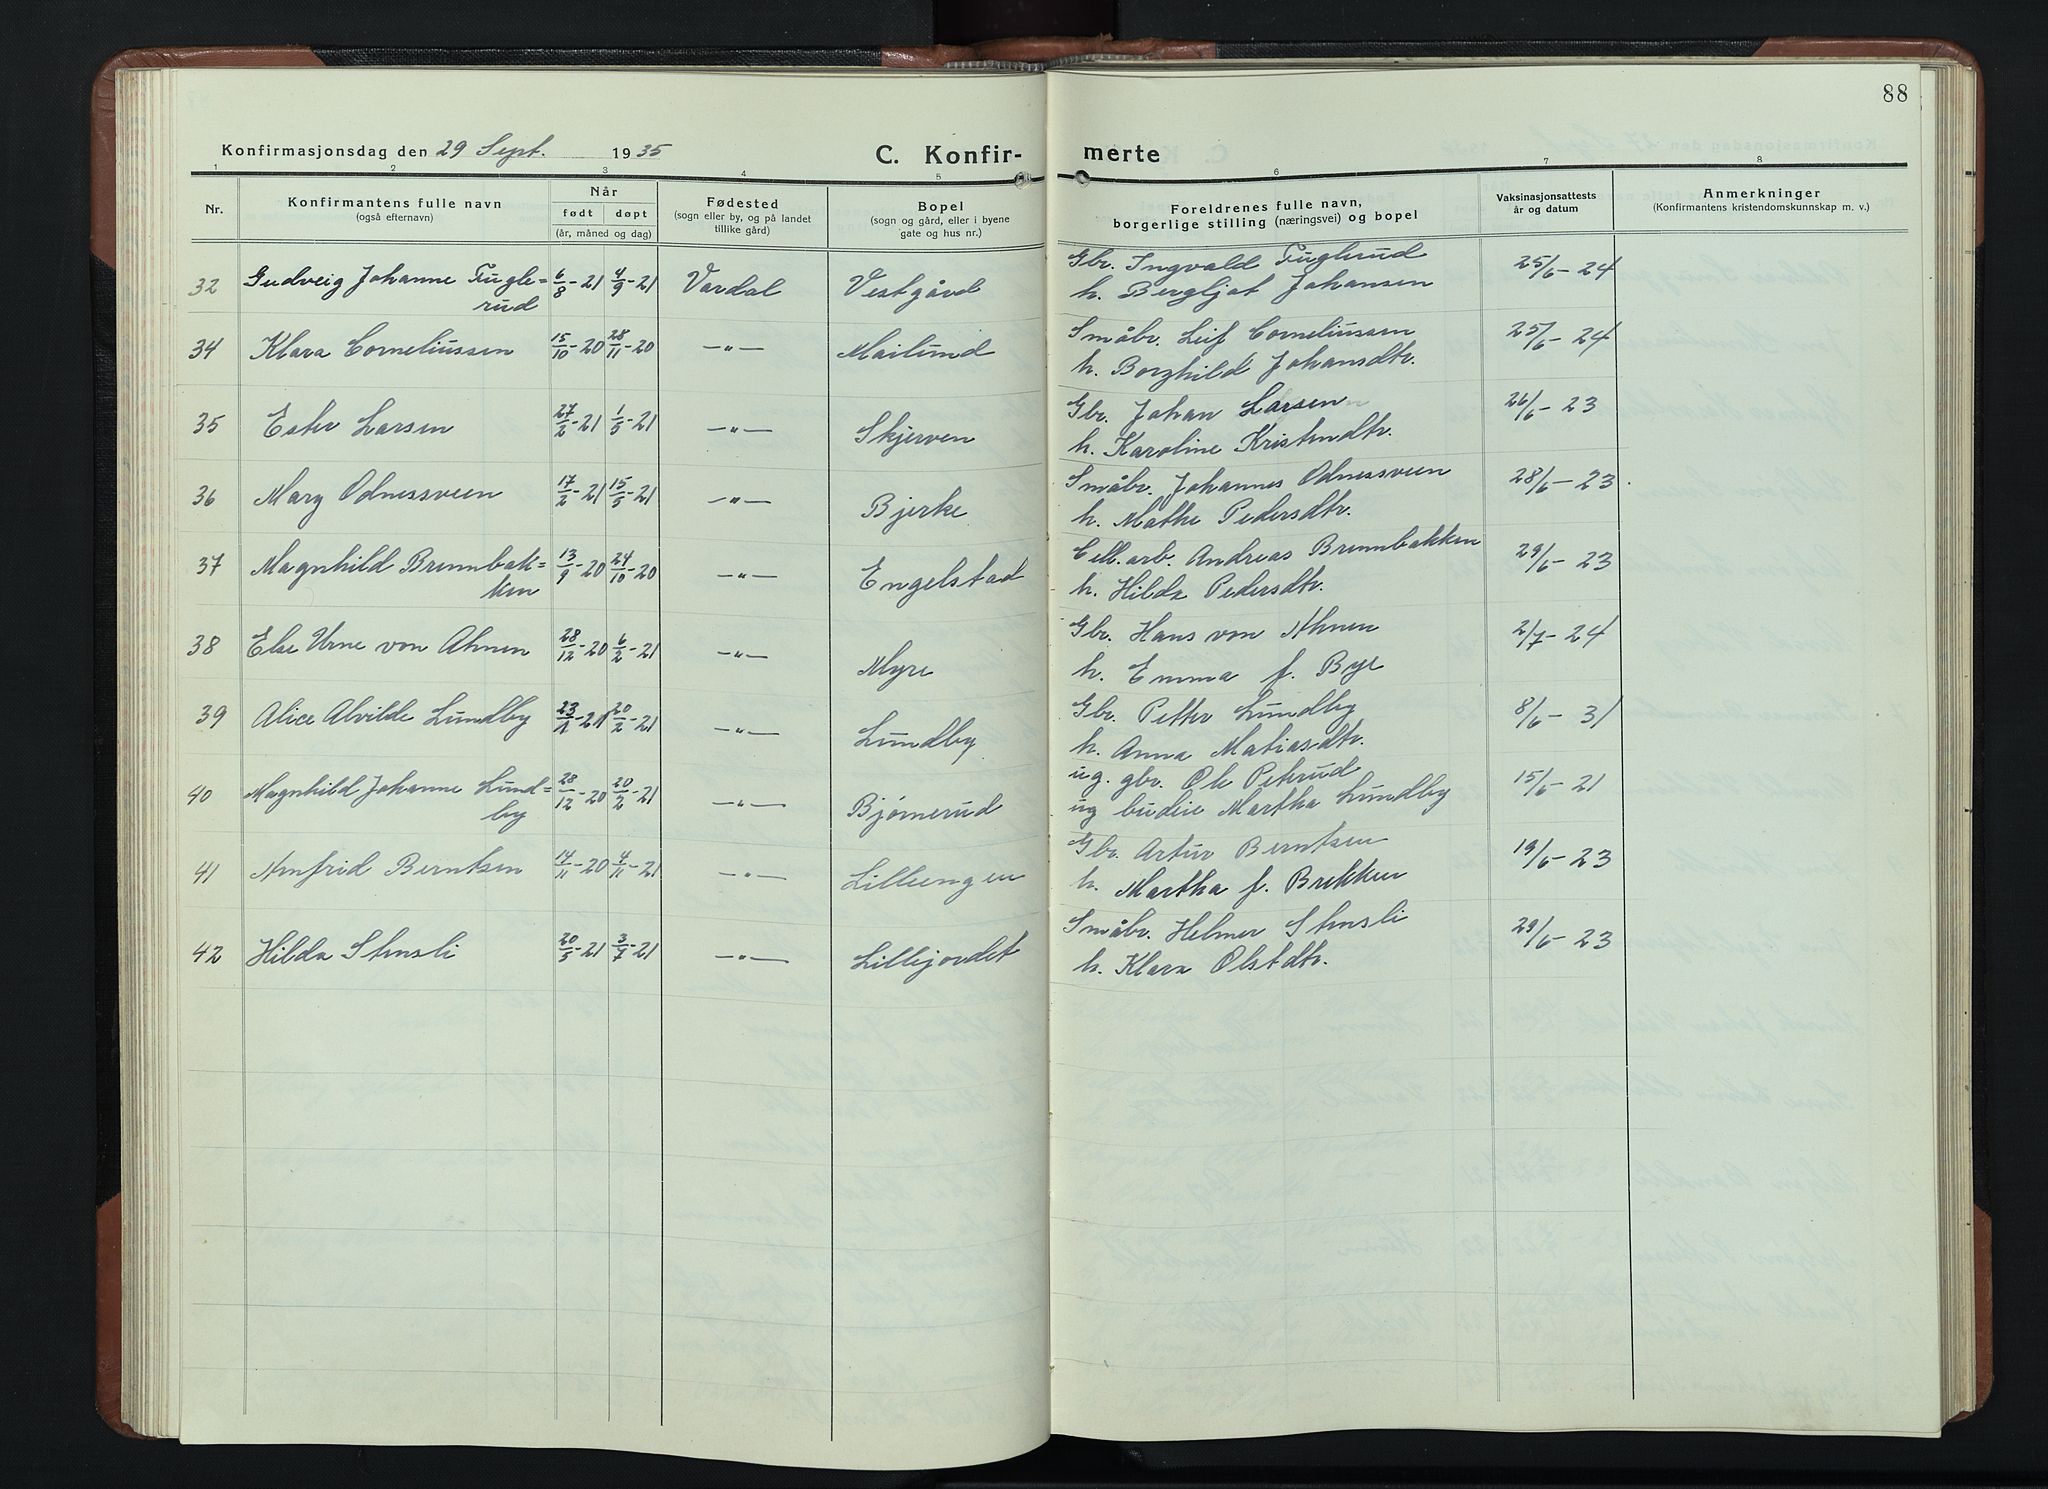 88
Konfirmasjonsdag den 29 Sept. 1935
C. Konfir-
merte
1 2 3 4 5 6 7 8
Nr.
Konfirmantens fulle navn
(også efternavn)
Når
født døpt
(år, måned og dag)
Fødested
(sogn eller by, og på landet
tillike gård)
Bopel
(sogn og gård, eller i byene
gate og hus nr.)
Foreldrenes fulle navn,
borgerlige stilling (næringsvei) og bopel
Vaksinasjonsattests
år og datum
Anmerkninger
(Konfirmantens kristendomskunnskap m. v.)
32 Gudveig Johanne Fugle= 6/8-21 4/9-21 Vardal Vestgård Gbr. Ingvald Fuglerud 25/6-24
rud h. Bergljot Johansen
34 Klara Corneliussen 15/10-20 28/11-20 -"- Mailund Småbr. Leif Corneliussen 25/6-24
h. Borghild Johansdtr.
35 Ester Larsen 27/2-21 1/5-21 -"- Skjerven Gbr. Johan Larsen 26/6-23
h. Karoline Kristendtr.
36 Mary Odnessveen 17/2-21 15/5-21 -"- Bjerke Småbr. Johannes Odnessveen 28/6-23
h. Mathe Pedersdtr.
37 Magnhild Brennbak= 13/9-20 24/10-20 -"- Engelstad Cell.arb. Andreas Brennbakken 29/6-23
ken h. Hilda Pedersdtr.
38 Else Urne von Ahnen 28/12-20 6/2-21 -"- Myre Gbr. Hans von Ahnen 2/7-24
h. Emma f. Bye
39 Alice Alvilde Lundby 23/1-21 20/2-21 -"- Lundby Gbr. Petter Lundby 8/6-31
h. Anna Matiasdtr.
40 Magnhild Johanne Lund= 28/12-20 20/2-21 -"- Bjørnerud ug. gbr. Ole Peterud 15/6-21
by ug budeie Martha Lundby
41 Arnfrid Berntsen 14/11-20 4/11-21 -"- Lilleengen Gbr. Artur Berntsen 19/6-23
h. Martha f. Brekken
42 Hilda Stensli 20/5-21 3/7-21 -"- Lillejordet Småbr. Helmer Stensli 29/6-23
h. Klara Olstdtr.